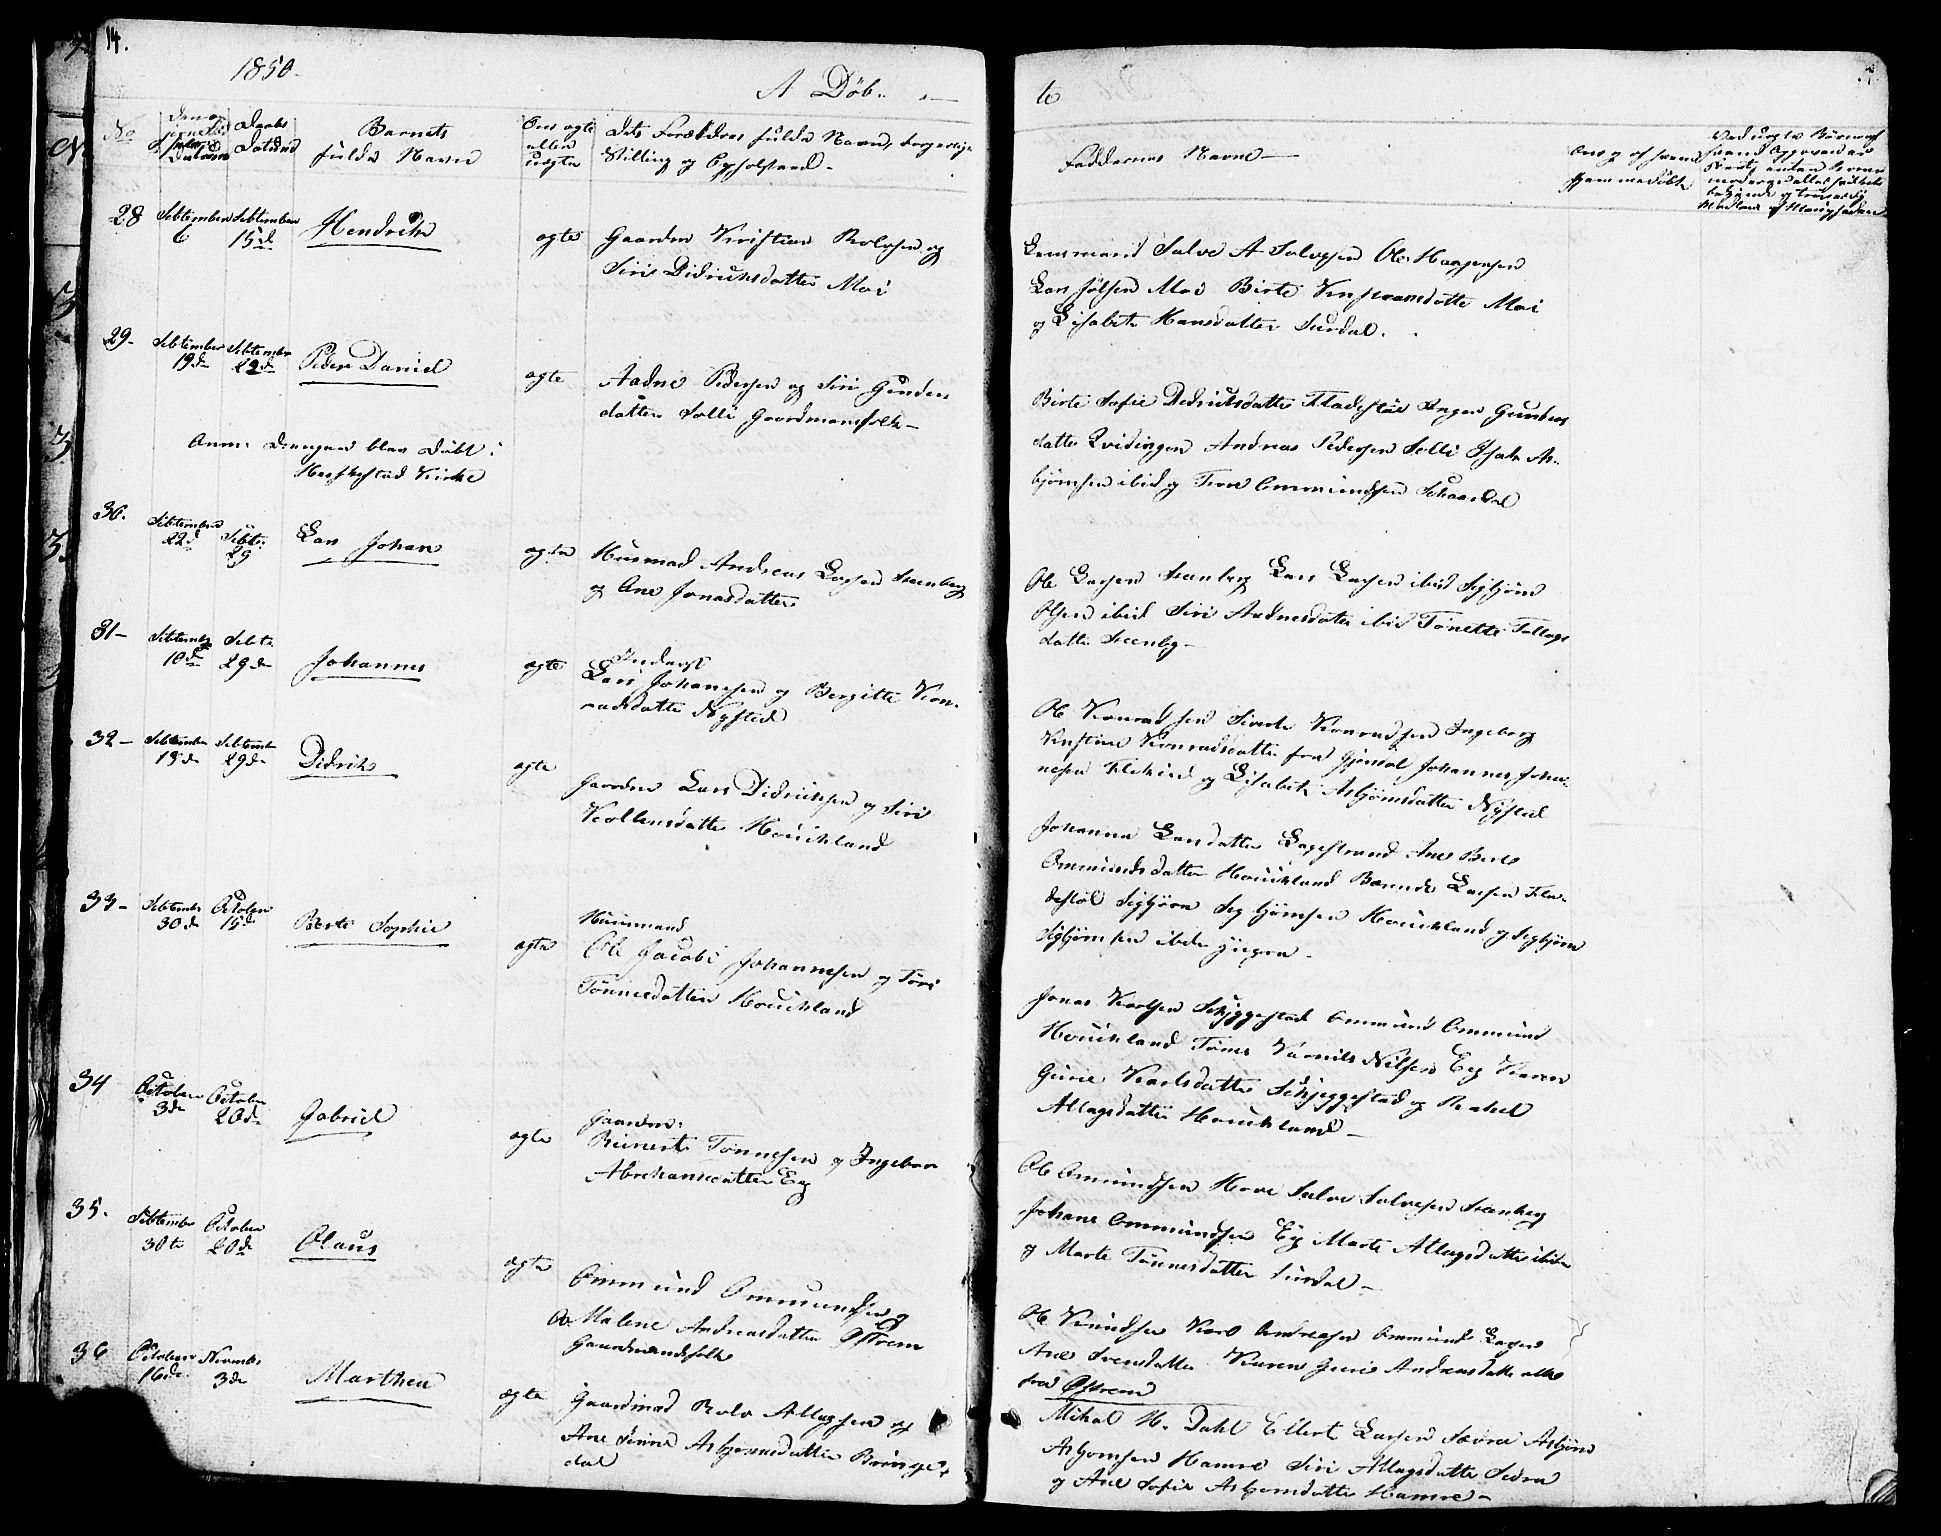 14.
1850.
A Døb..
te
No
Daabs
Datum
Barnets
fulde Navn
Om ægte
eller
uægte
Dets Forældres fulde Navn, borgerlige
Stilling og Opholdssted.
Faddernes Navne
28 Sebtember 6 Sebtember 15de Hendrik ægte Gaardm Kristian Rolvsen og
Siri Didriksdatter Moi
Lensmand Salve A Salvesen Ole Haagensen
Lars Jølsen Moi Birte Moi
og Elisabeth Hansdatter Surdal.
29 Sebtember 19de Sebtember 22de Peder Daniel ægte Aadne Pedersen og Siri Gunders
datter Solli Gaardmansfolk
Anm: Drengen blev døbt i
Heskestad Kirke
Birte Sofie Didriksdatter Fladestøl Inger Gunders
datter Qvidingen Andreas Pedersen Solli Isak As-
bjørnsen ibid og Tore Ommundsen Skaardal
30. Sebtember 22de Sebtb: 29 Lars Johan ægte Husmad Andreas Larsen Steenberg
og Ane Jonasdatter
Ole Larsen Steenberg Lars Larsen ibid Sigbjørn
Olsen ibid Siri Andersdatter ibid Tonette Tollags
datter Steenbg
31 Sebtember 10de Sebtb 29de Johannes ægte Inderst
Lars Johannesen og Bergitte Kon-
radsdatter Nysted
Ole Konradsen Sivert Konradsen Ingeborg
Kristine Konradsdatter fra Gjersdal Johannes Johan-
nesen og Elisabeth Asbjørnsdatter Nysted
32 Sebtember 15de Sebtember 29de Didrik ægte Gaardm Lars Didriksen og Siri
Kollensdatter Houkland
Johanna Larsdatter Lagestrand Ane Berte
Ommundsdatter Houkland Berndt Larsen Fla-
destøl Sigbjørn Sigbjørnsen Houkland og Sigbjørn
Sigbjørnsen ibid
33 Sebtember 30de October 15de Berte Sophie ægte Huusmand
Ole Jacob Johannesen og Tori
Tønnesdatter Houkland
Jonas Karlsen Skjeggestad Ommund Ommund
Houkland Tønes Nilsen Eeg Karen
Gurie Karlsdatter Skjeggestad og Rakel
Atlagsdatter Houkland
34 October 3de October 20de Gabriel ægte Gaardm:
Reinert Tønnesen og Ingebor
Abrehamsdatter Eeg
Ole Ommundsen Hove Salve Salvesen Steenberg
Johans Ommundsen Eeg Marte Atlagsdatter ibid
og Marte Tønnesdatter Surdal
35. Sebtember 30te October 20de Olaus ægte Ommund Ommundsen og
Malene Andreasdatter Østrem
Gaardmandsfolk
Ole Knudsen Karl Andreasen Ommund Larsen
Ane Svensdatter Karen Gurie Andreasdatter alle
fra Østrem
36 October 16de November 3de Marthea ægte Gaardmad Rolv Atlagsen og
Ane Sirine Asbjørnsdatter Bringe-
dal
Mikal H. Dahl Ellert Larsen Sævra Asbjørn
Asbjørnsen Hamre Siri Atlagsdatter Sevra
og Ane Sofie Asbjørnsdatter Hamre